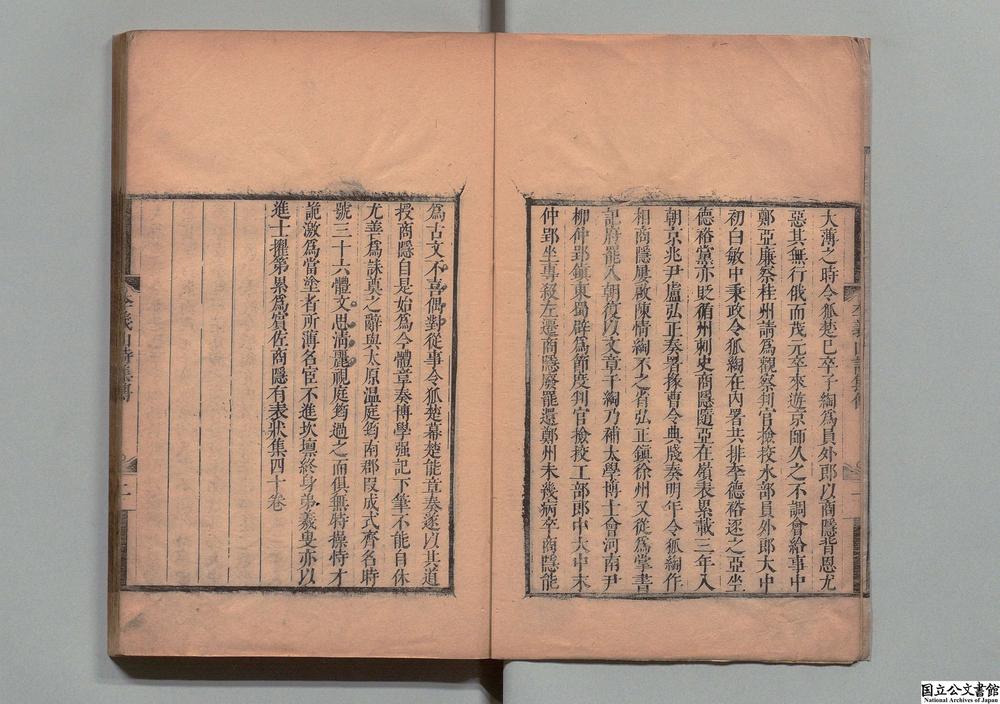 大薄之時令狐楚已卒子綯爲員外郎以商隱背恩尤
惡其無行俄而茂元卒來遊京師久之不調會給事中
鄭亞廉察桂州請爲觀察判官檢挍水部員外郎大中
初白敏中秉政令狐綯在內署共排李德裕逐之亞坐
德裕黨亦貶循州刺史商隱隨亞在嶺表累載三年入
朝京兆尹盧弘正奏署掾曹令典牋奏明年令狐綯作
相商隱屢啟陳情綯不之省弘正鎮徐州又從爲掌書
記府罷入朝復以文章干綯乃補太學博士會河南尹
柳仲郢鎮東蜀辟爲節度判官檢挍工部郎中大中末
仲郢坐專殺左遷商隱廢罷還鄭州未幾病卒商隱能
李義山詩集傳
一
爲古文不喜偶對從事令狐楚幕楚能章奏遂以其道
授商隱自是始爲今體章奏博學强記下筆不能自休
尤善爲誄奠之辭與太原温庭筠南郡段成式齊名時
號三十六體文思淸麗視庭筠過之而俱無特操恃才
詭激爲當塗者所薄名宦不進坎壈終身弟羲叟亦以
進士擢第累爲賓佐商隱有表狀集四十卷
李義山詩集傳
二
国立公文書館
National Archives of Japan